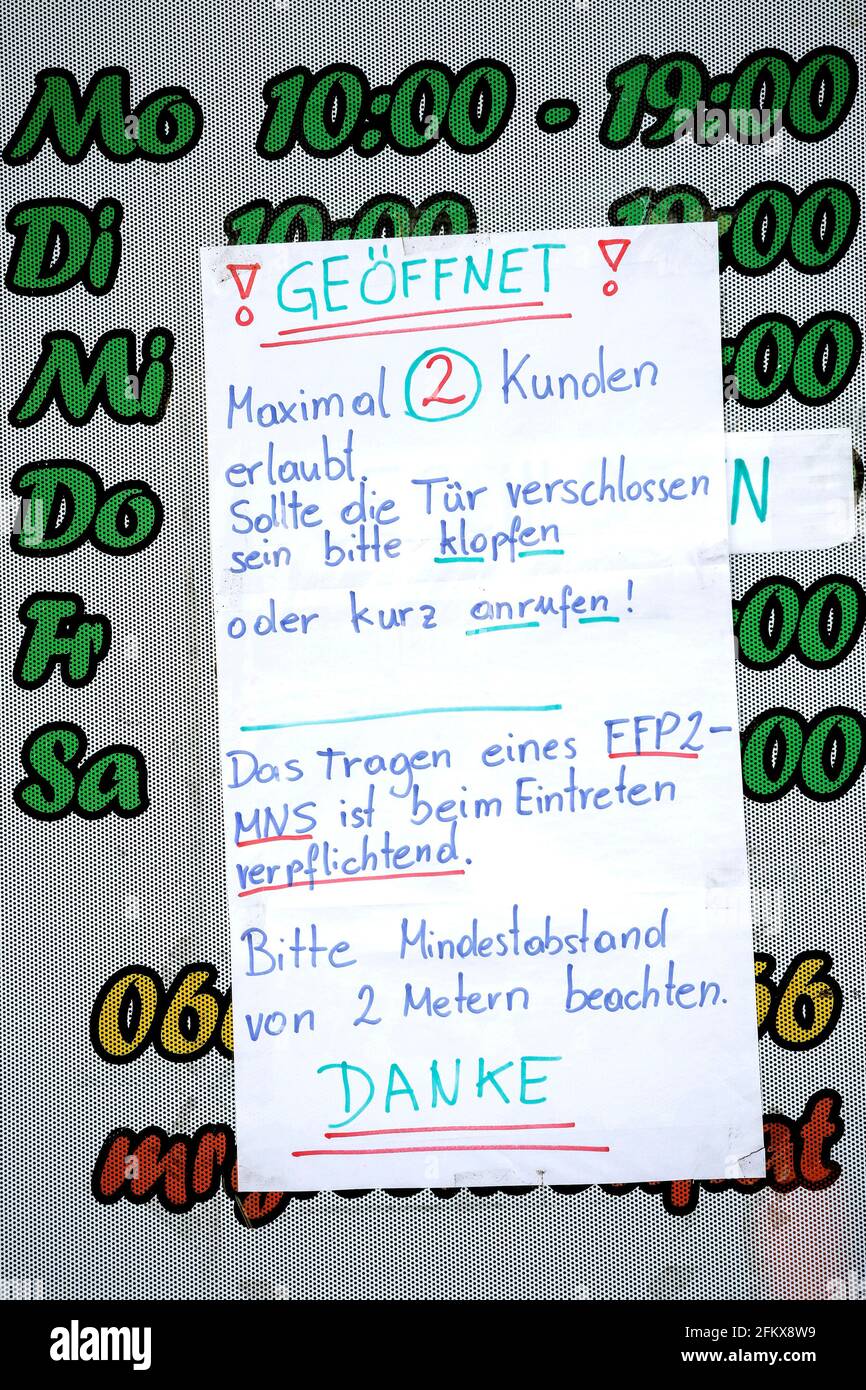 Mo 10:00 - 19:00
Di 10:00 19:00
! GEÖFFNET !
Mi :00
Maximal 2 Kunden
erlaubt.
Do N
Sollte die Tür verschlossen
sein bitte klopfen
Fr :00
oder kurz anrufen!
Sa :00
Das Tragen eines FFP2-
MNS ist beim Eintreten
verpflichtend.
Bitte Mindestabstand
von 2 Metern beachten.
DANKE
alamy
Image ID: 2FKX8W9
www.alamy.com